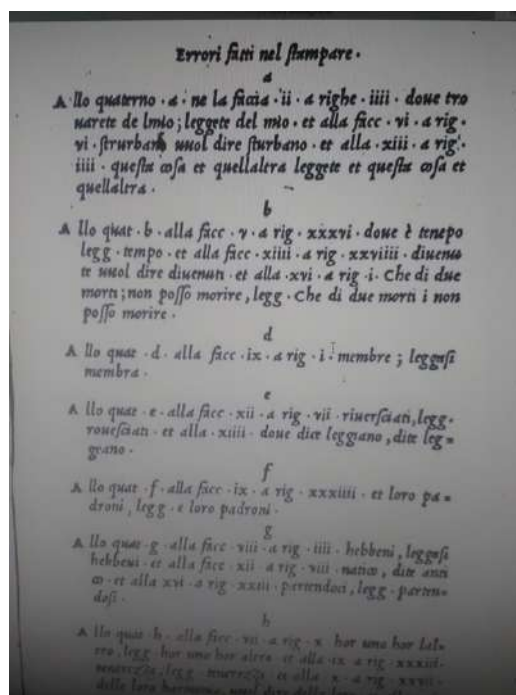 Errori fatti nel stampare .
a
A llo quaterno . a . ne la faccia . ii . a righe . iiii . doue tro
uarete de lmio ; leggete del mio . et alla facc . vi . a rig .
vi . strurbano uuol dire sturbano . et alla . xiii . a rig .
iiii . questa cosa et quellaltra leggete et questa cosa et
quellaltra .
b
A llo quat . b . alla facc . v . a rig . xxxvi . doue è tenepo
legg . tempo . et alla facc . xiiii . a rig . xxviiii . diuenu
te uuol dire diuenuti . et alla . xvi . a rig . i . Che di due
morti ; non posso morire , legg . Che di due morti i non
posso morire .
d
A llo quat . d . alla facc . ix . a rig . i . membre ; leggasi
membra .
e
A llo quat . e . alla facc . xii . a rig . vii . riuersciati, legg .
rouesciati . et alla . xiiii . doue dice leggiano , dite leg=
grano .
f
A llo quat . f . alla facc . ix . a rig . xxxiiii . et loro pa=
droni , legg . e loro padroni .
g
A llo quat . g . alla facc . viii . a rig . iiii . hebbeni , leggasi
hebbeui . et alla facc . xii . a rig . viii . natico , dite anti
co . et alla xvi . a rig . xxiii . partendoci , legg . parten=
dosi .
h
A llo quat . h . alla facc . vii . a rig . x . hor una hor lal=
tro , legg . hor una hor altra . et alla ix . a rig .
legg .
delle loro uuol dire